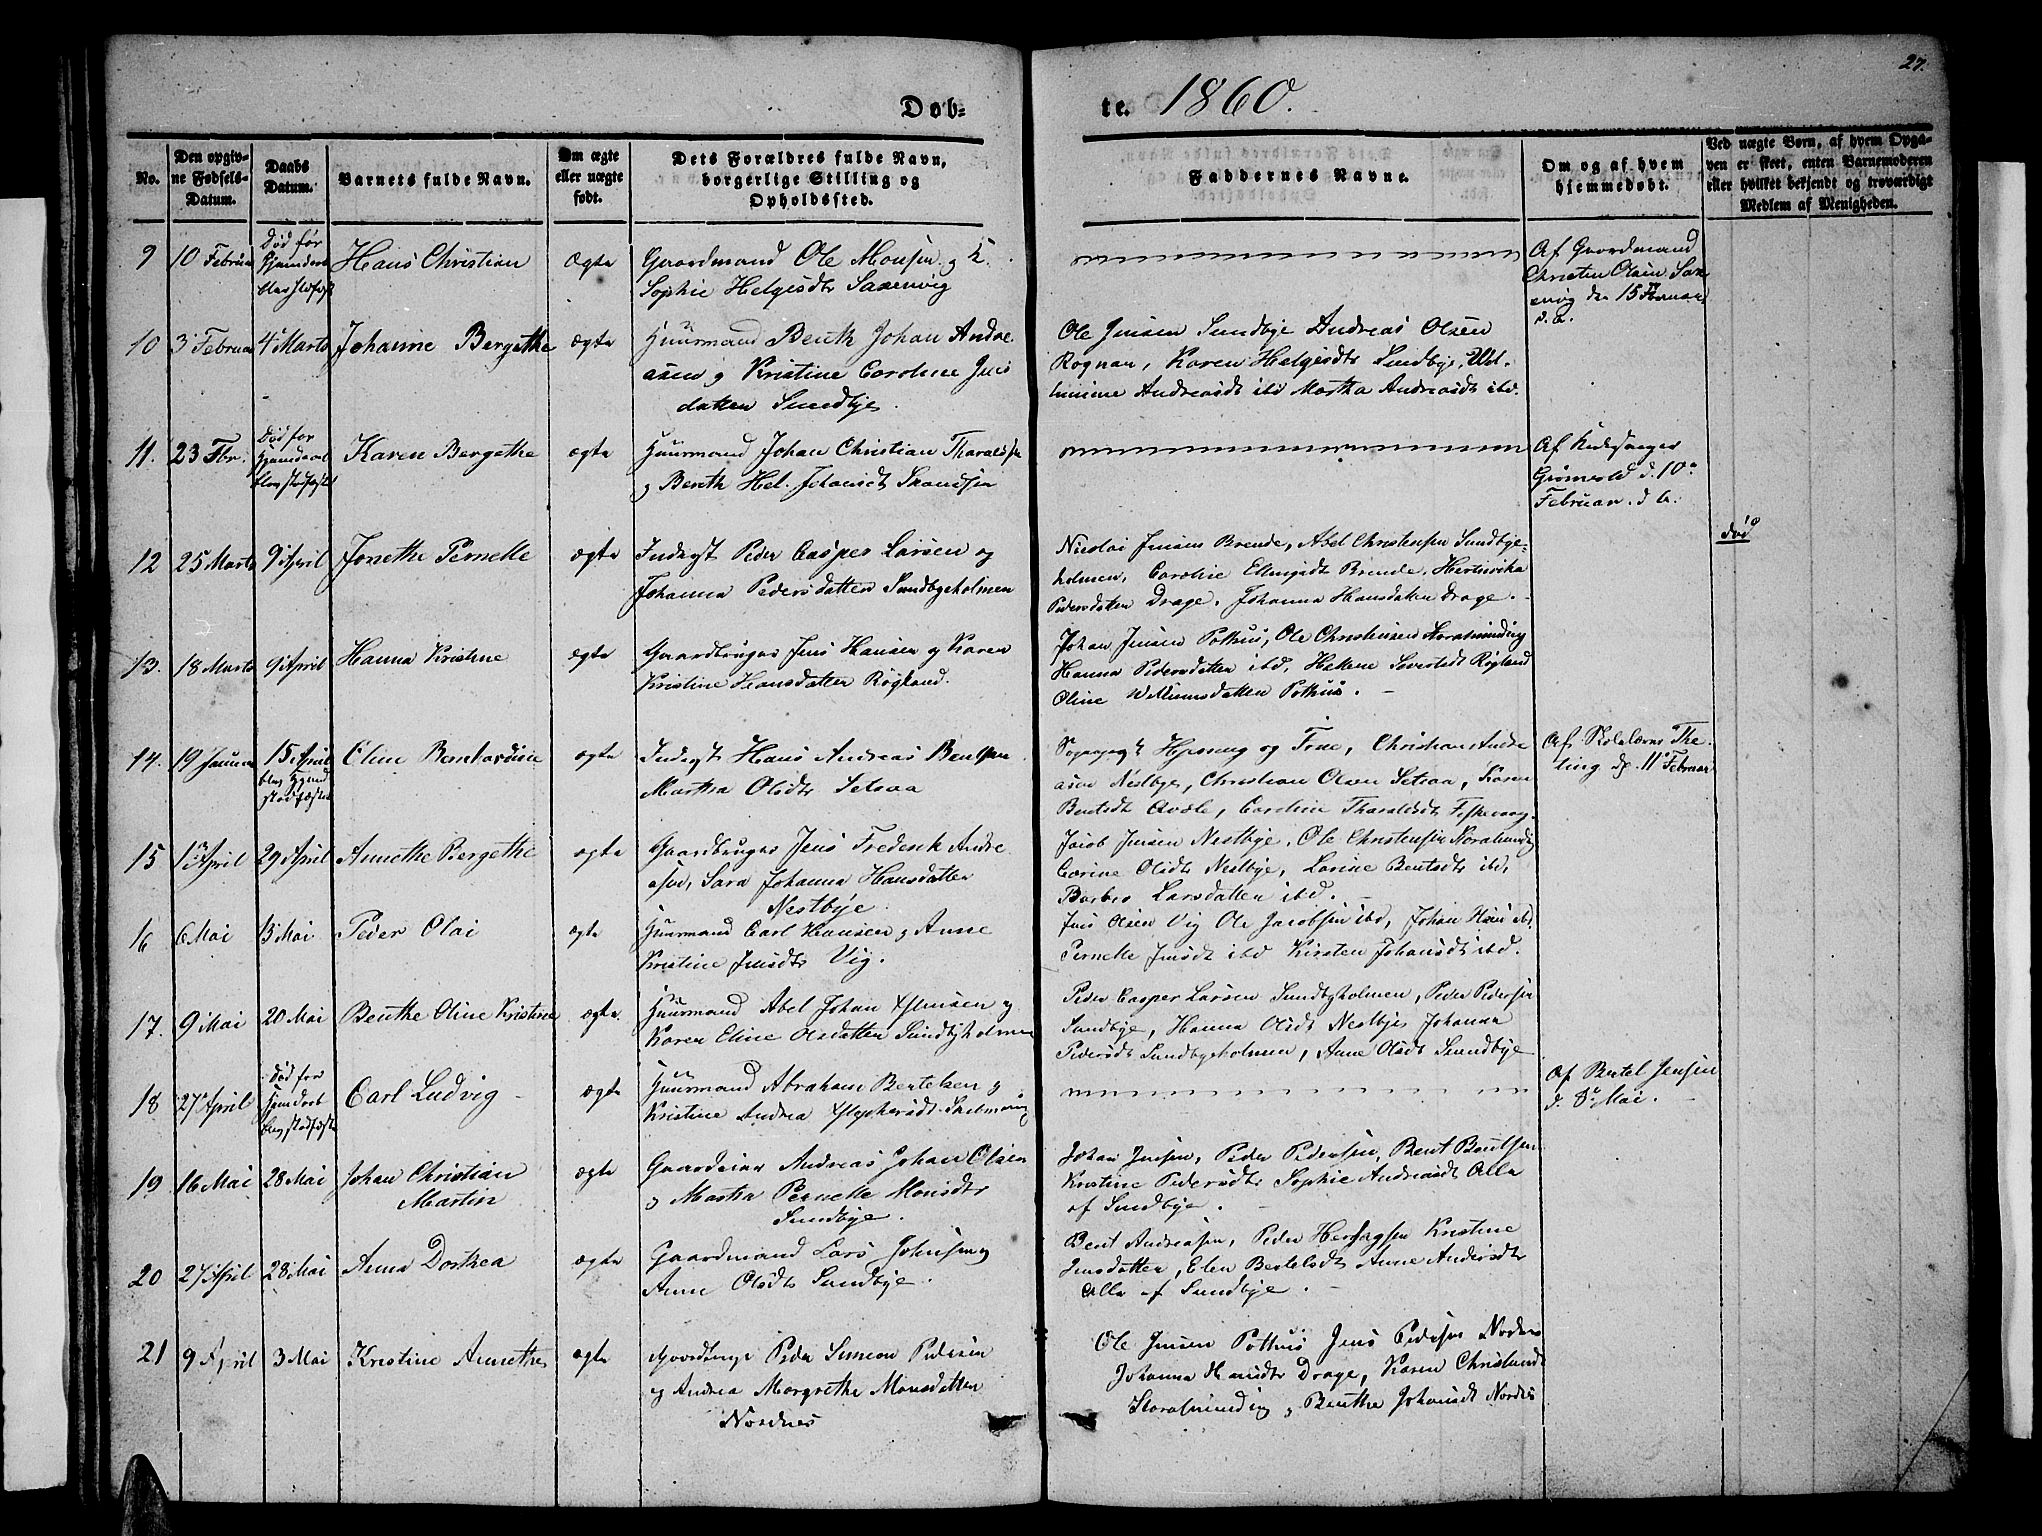 27.
Døb=
te. 1860.
No.
Den opgiv-
ne Fødsels-
Datum.
Daabs
Datum.
Barnets fulde Navn.
Om ægte
eller uægte
født.
Dets Forældres fulde Navn,
borgerlige Stilling og
Opholdssted.
Faddernes Navne.
Om og af hvem
hjemmedøbt.
Ved uægte Børn, af hvem Opga-
ven er skeet, enten Barnemoderen
eller hvilket bekjendt og troværdigt
Medlem af Menigheden.
9 10 Februar Død før Hans Christian Ægte Gaardmand Ole Monsen og K.
Sophie Helgesdtr Saxenvig
Af Gaardmand
Christen Olsen Sax
envig den 15 Februar
d. a.
10 3 Februar 4 Marts Johanne Bergethe ægte Huusmand Benth Johan Andre
asen og Kristine Caroline Jens
datter Sundbye.
Ole Jensen Sundbye Andreas Olsen
Rognan, Karen Helgesdtr Sundbye, Wil-
helmine Andreasdt ibd Martha Andreasdt ibd.
11. 23 Fbr. Død før Karen Bergethe ægte Huusmand Johan Christian Tharalds
og Bereth Hel. Johansdt
Af Kirkesanger
d. 10de
Februar d. a.
12 25 Marts 9 April Jonethe Pernelle ægte Inderst Peder Casper Larsen og
Johanna Pedersdatter Sundbyeholmen
Nicolai Jensen Brende, Abel Christensen Sundbye-
holmen, Caroline Ellingsdt Brende, Hertsvika
Pedersdatter Drage, Johanna Hansdatter Drage.
død
13. 18 Marts 9 April Hanna Kristine ægte Gaardbruger Jens Hansen og Karen
Kristine Hansdatter Røgland.
Johan Jensen Pothus, Ole Christensen Storalminding
Hanna Pedersdatter ibd, Helene Røgland
Oline Willumsdatter Pothus.
14. 19 Januar 15 April Eline Bernhardine ægte Inderst Hans Andreas Bentsen
Martha Olsdtr Setsaa
og Frue, Christian Andre
asen Nestbye, Christian Olsen Setsaa, Karen
Bentsdt, Caroline Tharaldsdt Fiskevaag
Af Skolelærer The-
ting d. 11 Februar
15 1ste April 29 April Annethe Bergethe ægte Gaardbruger Jens Frederik Andre
asen, Sara Johanna Hansdatter
Nestbye
Jacob Jensen Nestbye, Ole Christensen Storalmind
Corine Olsdt Nestbye, Lorine Bentsdt ibd,
Barbro Larsdatter ibd.
16 6 Mai 13 Mai Peder Olai ægte Huusmand Carl Hansen og Anne
Kristine Jensdtr Vig.
Jens Olsen Vig Ole Jacobsen ibd, Johan Hans ibd
Pernelle Jensdt ibd Kirsten Johansdt ibd.
17. 9 Mai 20 Mai Benthe Oline Kristine ægte. Huusmand Abel Johan og
Karen Eline Olsdatter Sundbyholmen
Peder Casper Larsen Sundbyholmen, Peder Pedersen
Sundbye, Hanna Olsdt Nestbye, Johanna
Pedersdt Sundbyeholmen, Anne Olsdt Sundbye
18 27 April Død før Carl Ludvig ægte Huusmand Abraham Bertelsen og
Kristine Andrea
Af Bertel Jensen
d. 8de Mai.
19 16 Mai 28 Mai Johan Christian
Martin ægte Gaardeier Andreas Johan Olsen
og Martha Pernelle Monsdtr
Sundbye.
Johan Jensen, Peder Pedersen, Bent Bentsen
Kristine Pedersdtr Sophie Andreasdt Alle
af Sundbye.
20 27 April 28 Mai Anna Dorthea ægte Gaardmand Lars Johnsen og
Anne Olsdtr Sundbye.
Bent Andreasen, Peder Kristine
Jensdatter, Elen Bertelsdt Anne Andersdtr
Alle af Sundbye.
21 9 April 3 Mai Kristine Annethe ægte Gaardbruger Peder Simeon Pedersen
og Andrea Margrethe Monsdatter
Nordnes
Ole Jensen Pothus Jens Pedersen Nordnes
Johanna Hansdtr Drage, Karen Christensdt
Storalminding og Benthe Johansdt Nordnes